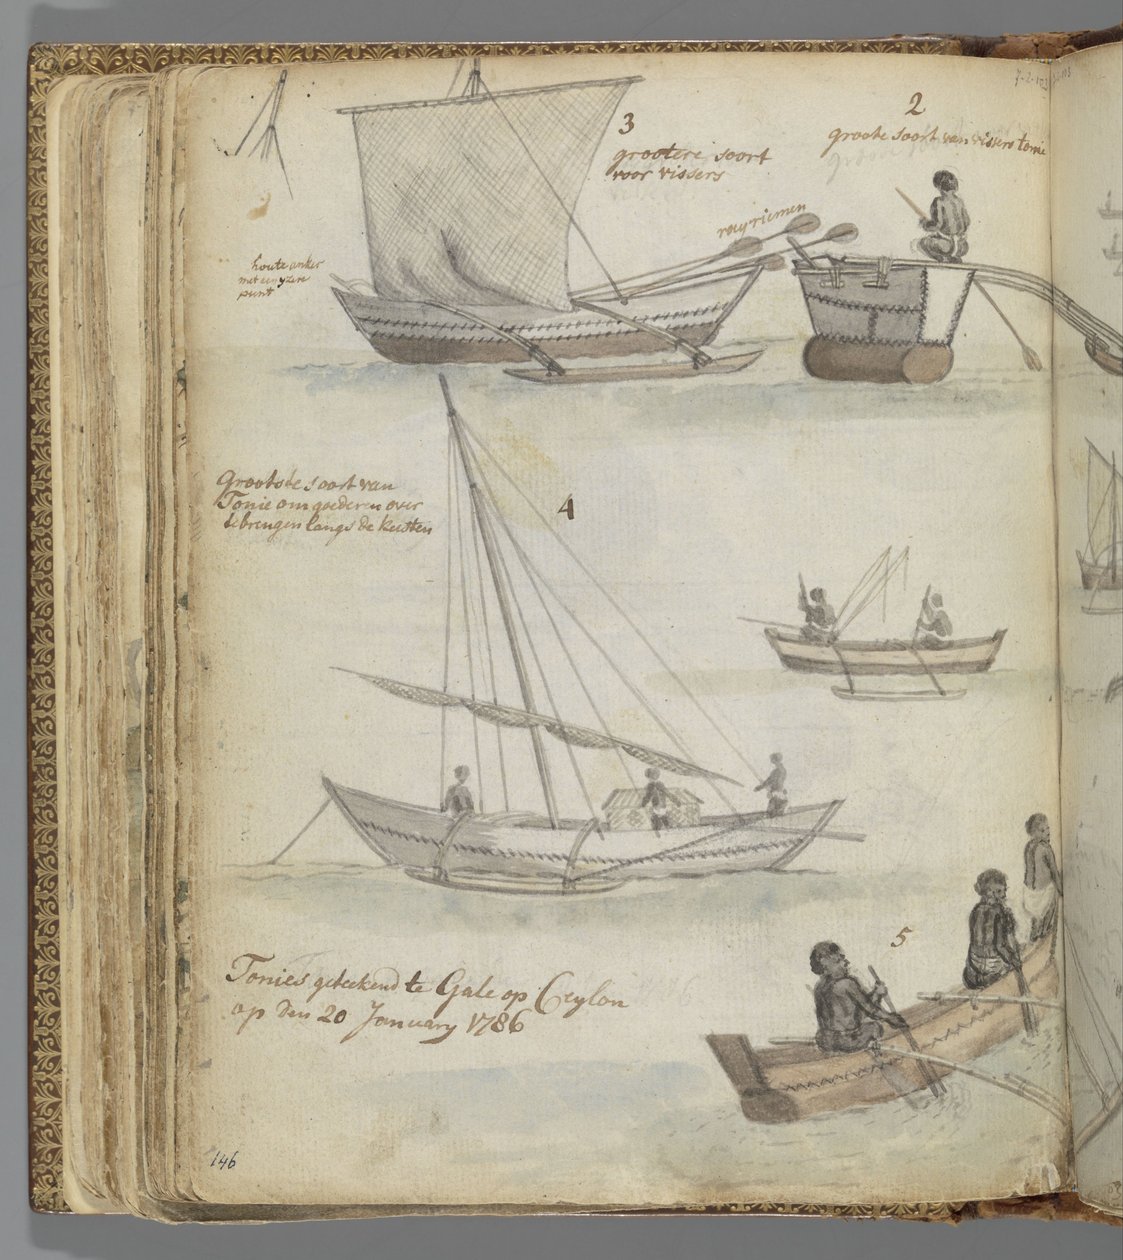 2
groote soort van vissers tonie
3
grootere soort
voor vissers
roeyriemen
houte anker
met een yzere
punt
4
Grootste soort van
Tonie om goederen over
te brengen langs de kusten
5
Tonies geteekend te Gale op Ceylon
op den 20 January 1786
146